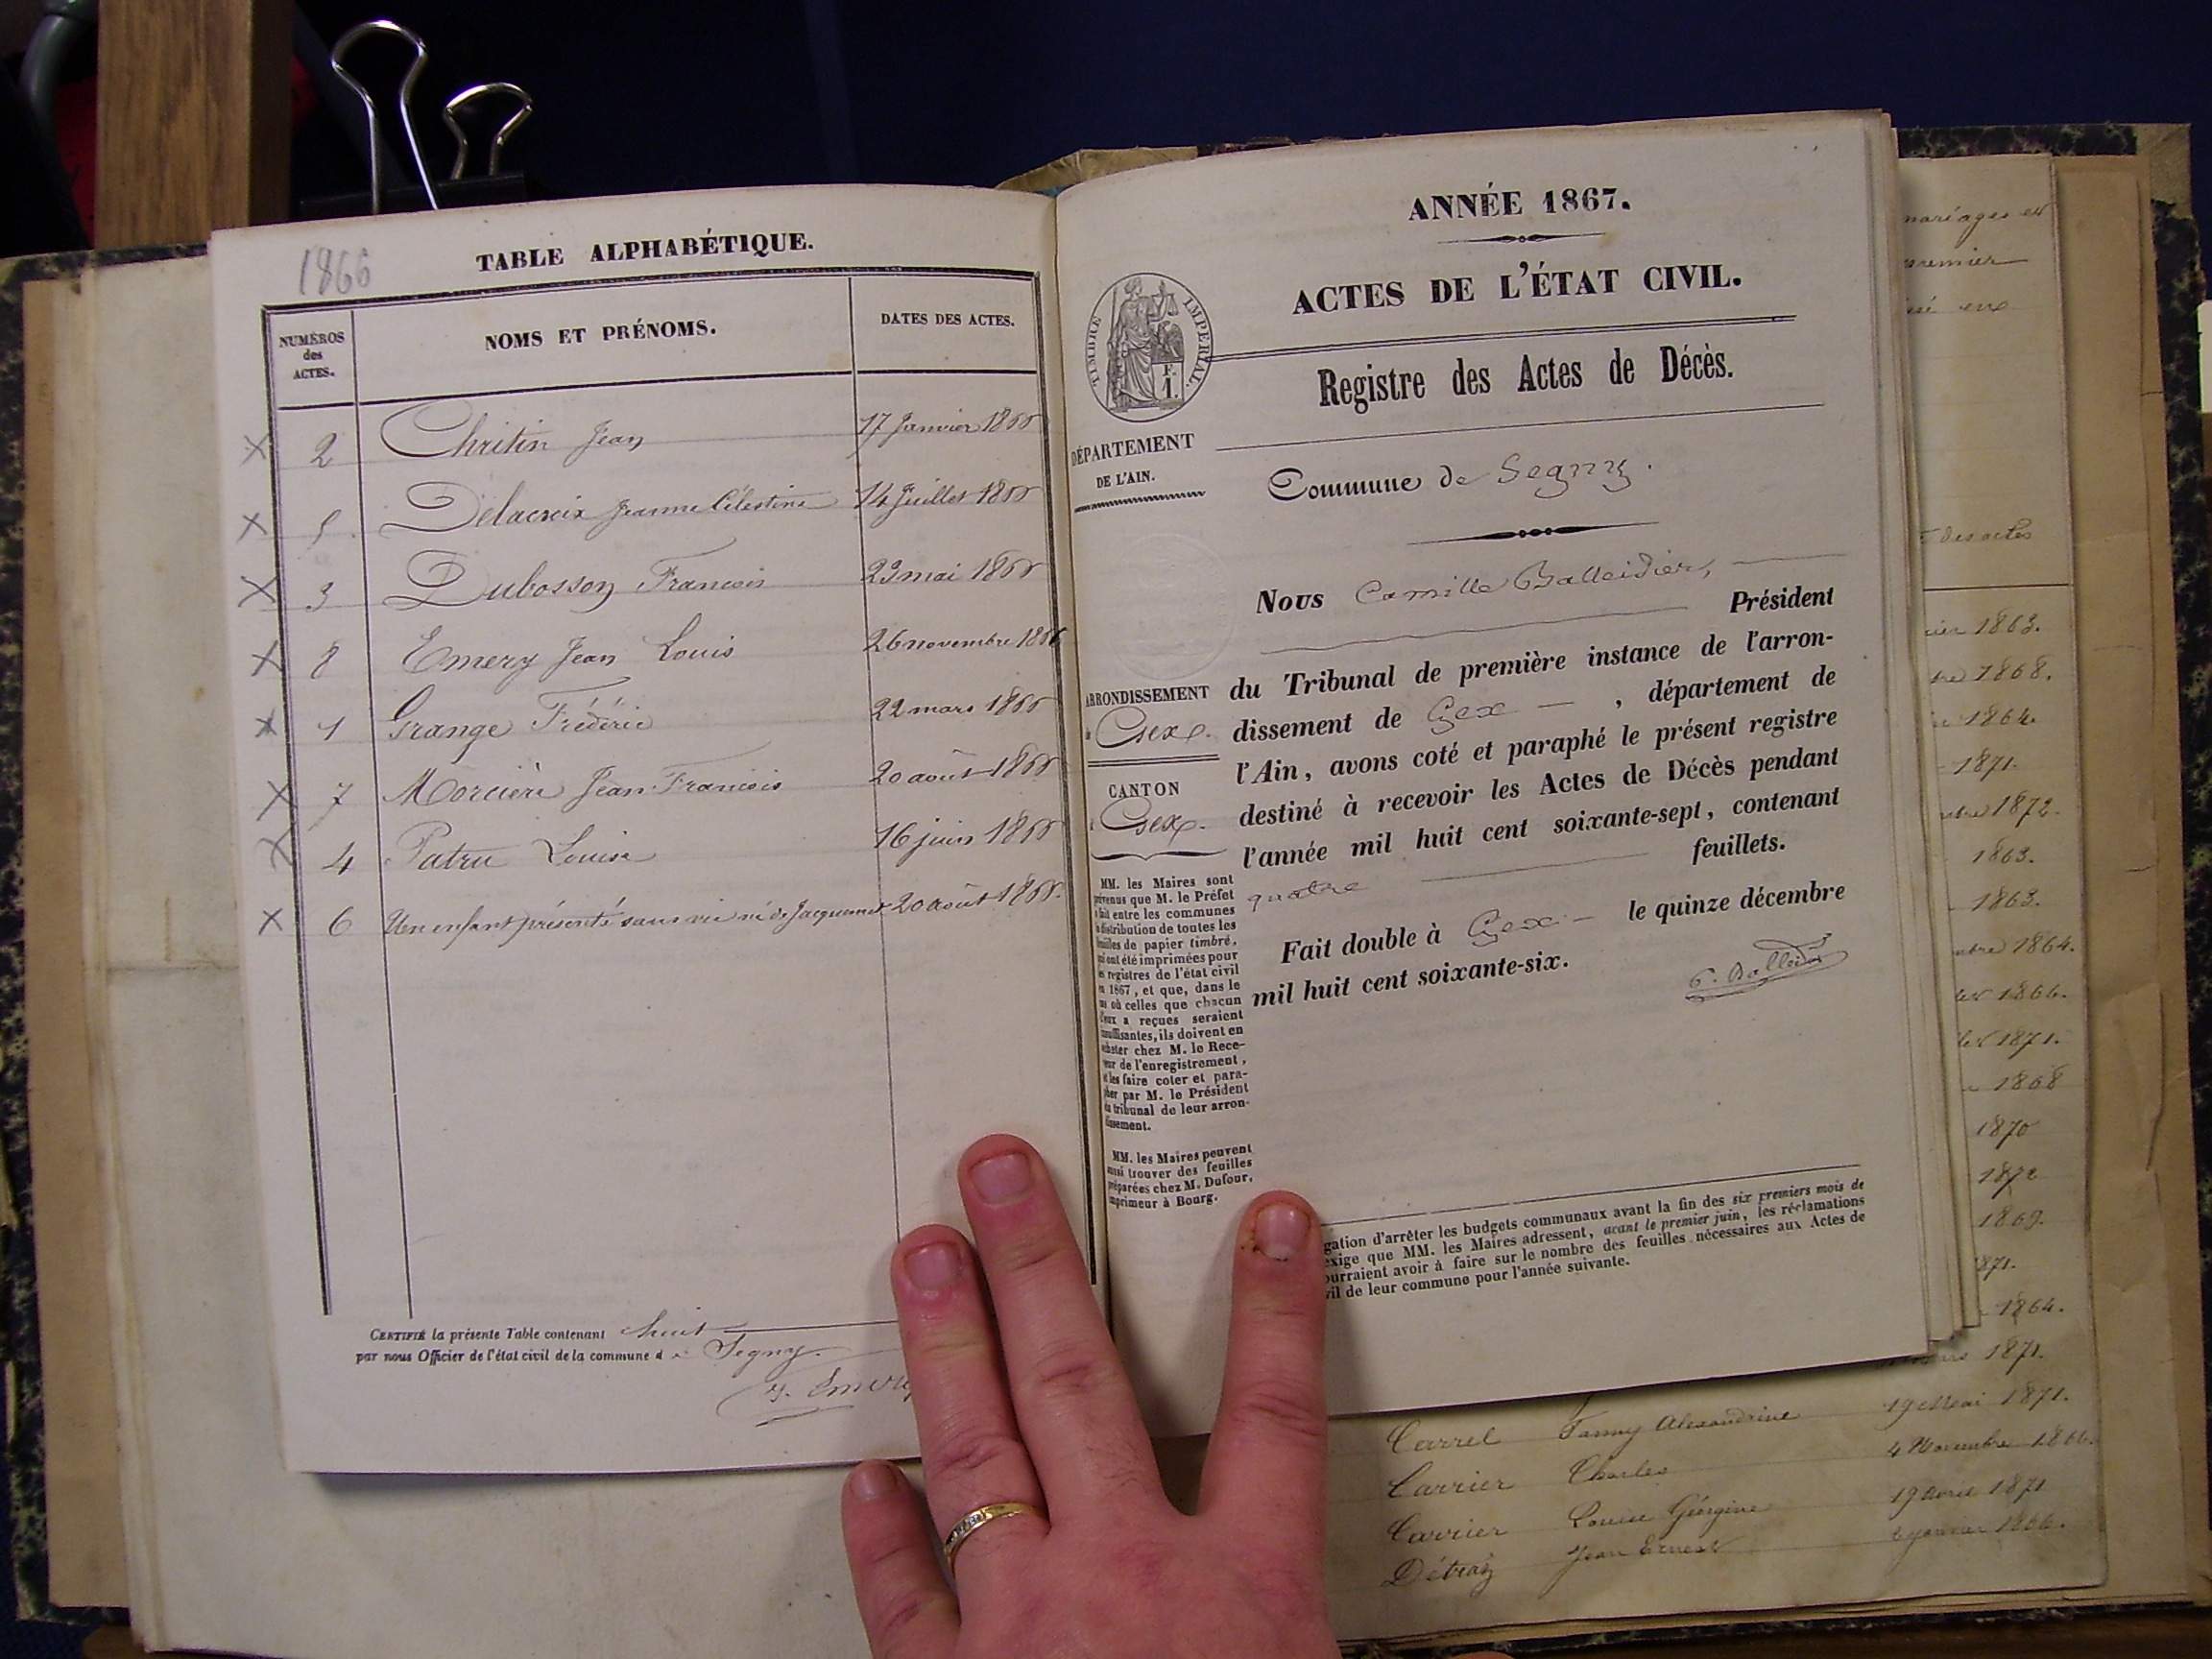 1866
TABLE ALPHABÉTIQUE.
NUMÉROS
des
ACTES.
NOMS ET PRÉNOMS.
DATES DES ACTES.
2 Chritin Jean 17 Janvier 1866
5 Delacroix Jeanne Célestine 14 Juillet 1866
3 Dubosson François 23 mai 1866
8 Emery Jean Louis 26 novembre 1866
1 Grange Frédéric 22 mars 1866
7 Morcière Jean François 20 août 1866
4 Patru Louise 16 juin 1866
6 Un enfant présenté sans vie né de Jacquemet 20 août 1866.
CERTIFIÉ la présente Table contenant huit
par nous Officier de l'état civil de la commune d Segny.
ANNÉE 1867.
ACTES DE L'ÉTAT CIVIL.
TIMBRE IMPERIAL.
F.
1.
Registre des Actes de Décès.
DÉPARTEMENT
DE L'AIN.
Commune de Segny.
Nous Camille Balleidier,
Président
du Tribunal de première instance de l'arron-
dissement de Gex, département de
l'Ain, avons coté et paraphé le présent registre
destiné à recevoir les Actes de Décès pendant
l'année mil huit cent soixante-sept, contenant
quatre feuillets.
Fait double à Gex le quinze décembre
mil huit cent soixante-six.
ARRONDISSEMENT
Gex.
CANTON
Gex.
MM. les Maires sont
prévenus que M. le Préfet
a fait entre les communes
la distribution de toutes les
feuilles de papier timbré,
qui ont été imprimées pour
les registres de l'état civil
en 1867, et que, dans le
cas où celles que chacun
d'eux a reçues seraient
insuffisantes, ils doivent en
acheter chez M. le Rece-
veur de l'enregistrement,
et les faire coter et para-
pher par M. le Président
du tribunal de leur arron-
dissement.
MM. les Maires peuvent
aussi trouver des feuilles
préparées chez M. Dufour,
imprimeur à Bourg.
gation d'arrêter les budgets communaux avant la fin des six premiers mois de
exige que MM. les Maires adressent, avant le premier juin, les réclamations
ourraient avoir à faire sur le nombre des feuilles nécessaires aux Actes de
vil de leur commune pour l'année suivante.
mariages et
premier
des actes
1863.
1868.
1864.
1871.
1872.
1863.
1863.
1864.
1866.
1871.
1868
1870
1872
1869.
871.
1864.
1871.
Carrel Fanny Alexandrine 19 Mai 1871.
Carrier Charles 4 Novembre 1866.
Carrier Louise Géorgine 19 avril 1871
Détraz Jean Ernest janvier 1866.